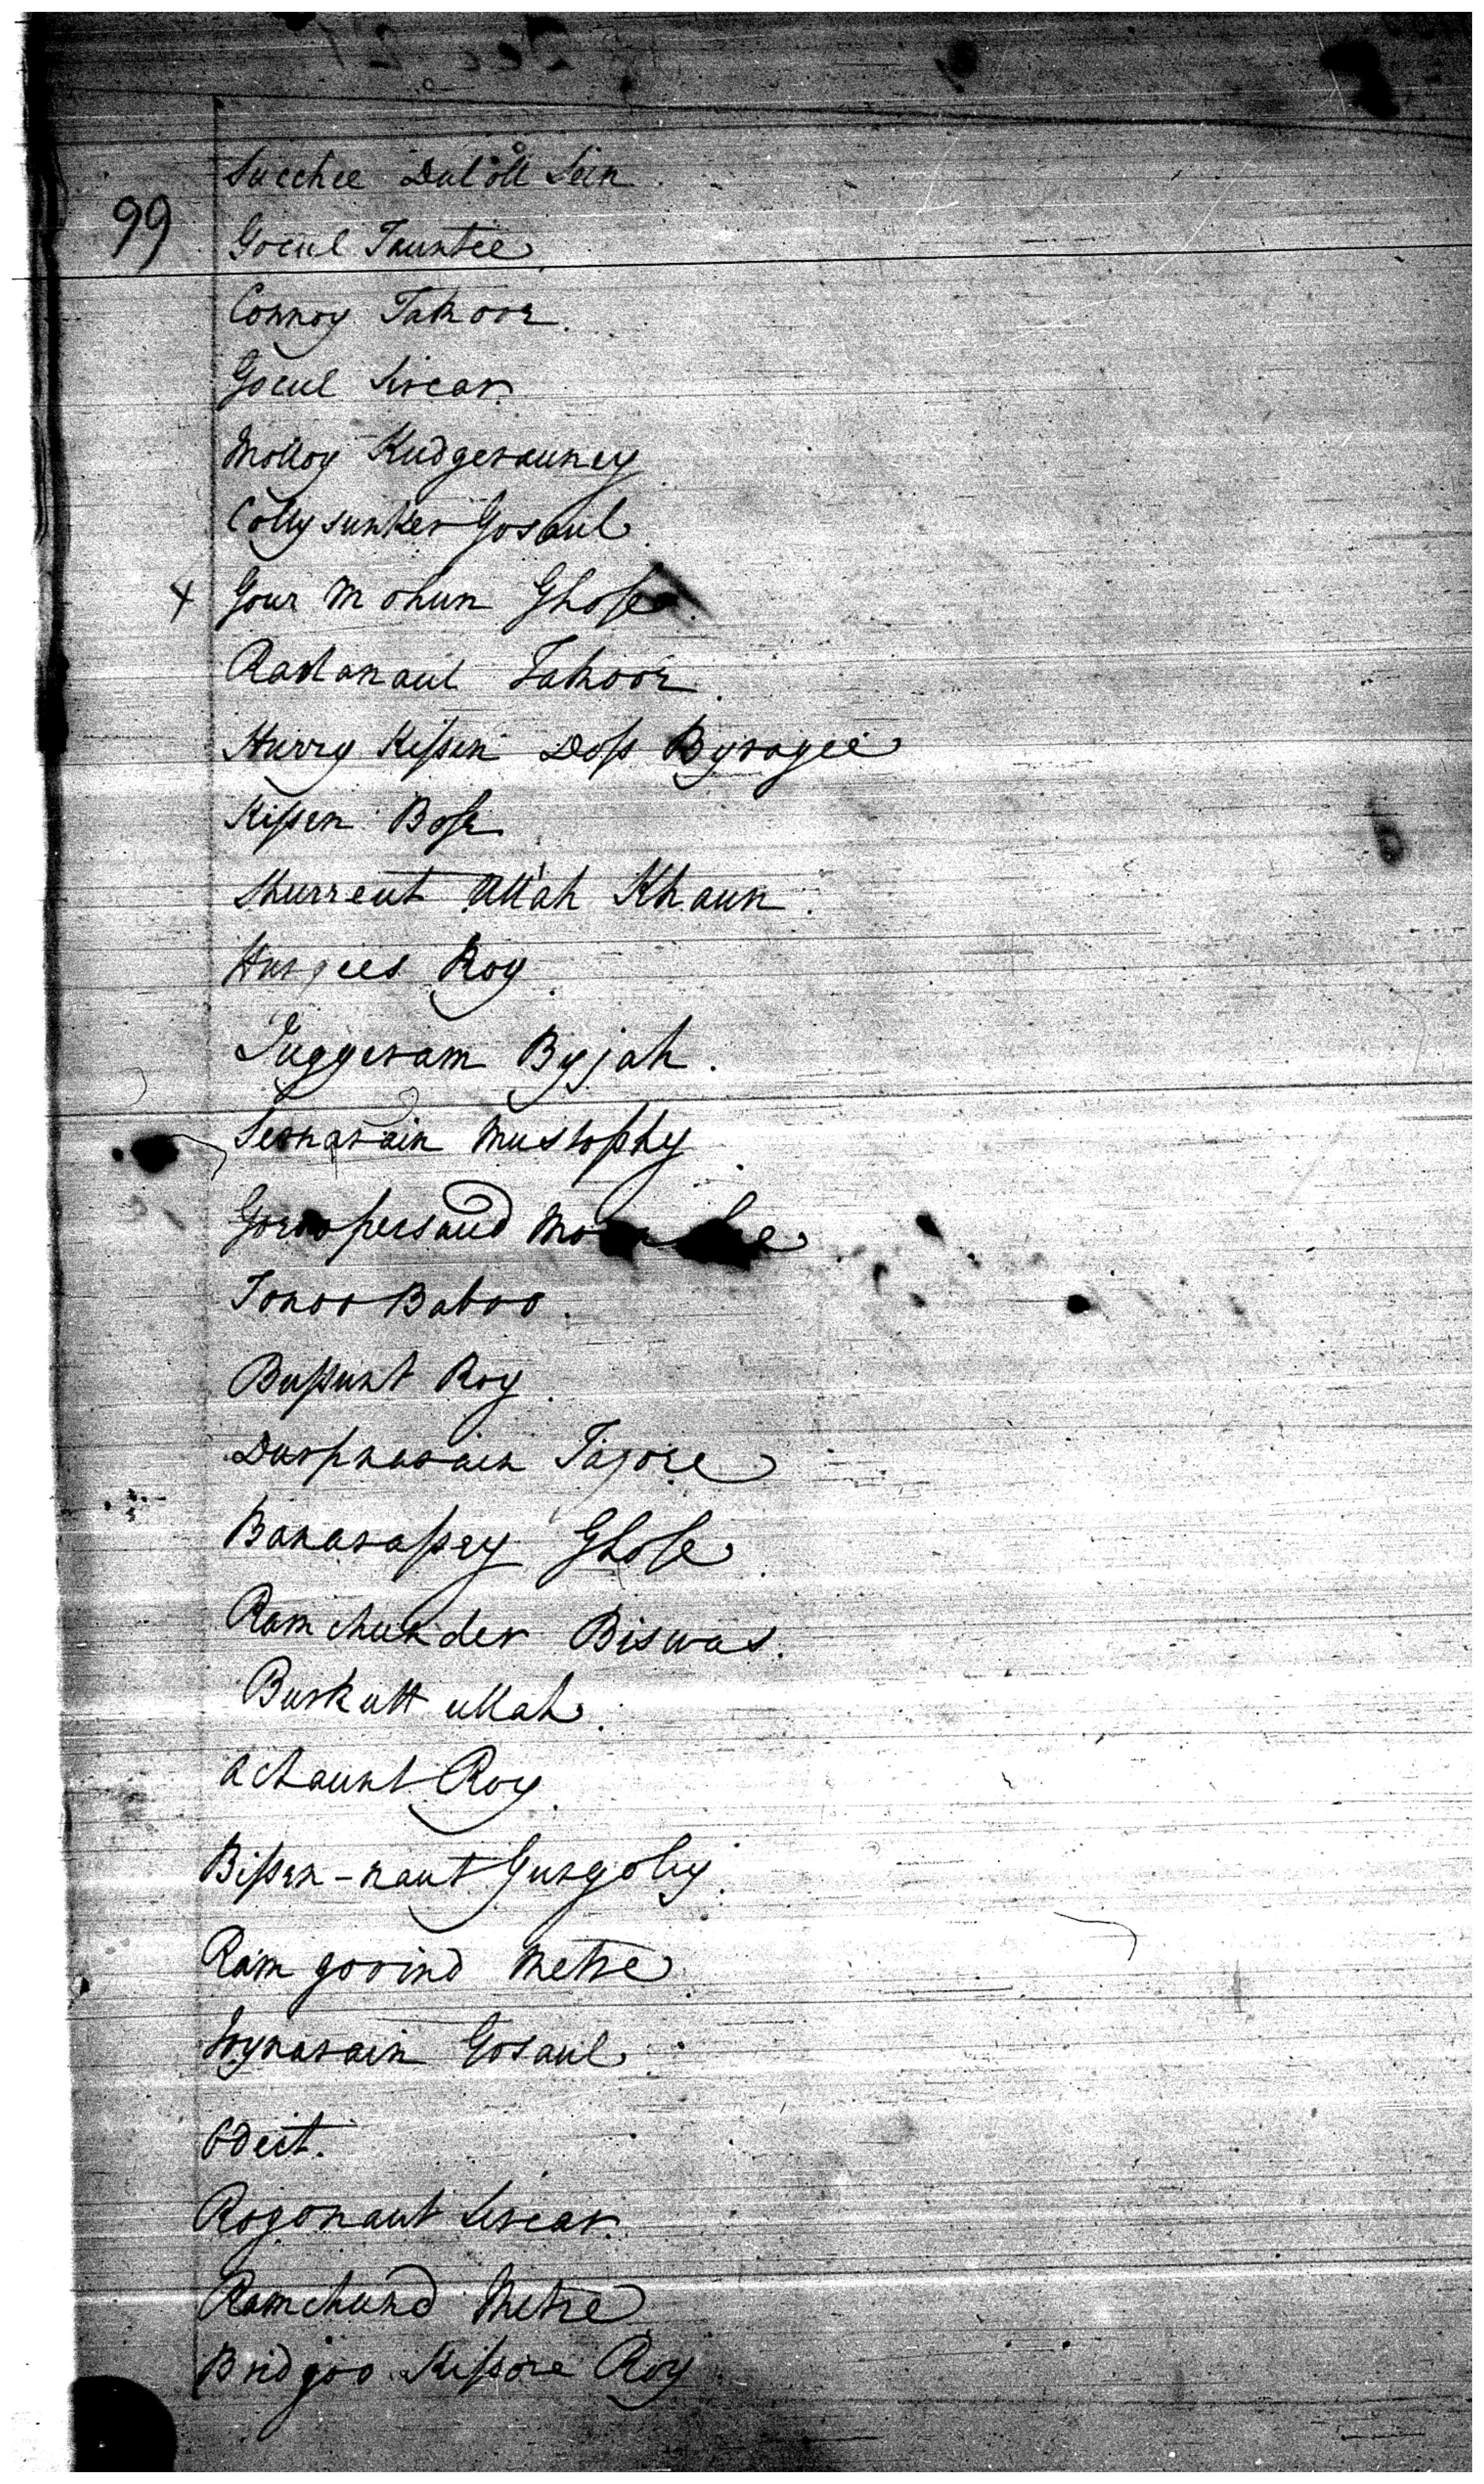 Succhee Dulott Sein
99
Gocul Tauntee
Connoy Takoor
Gocul Sircar
Molloy Kudgerauney
Collysunker Gosaul
x Gour Mohun Ghose
Radanaut Takoor
Hurry Kissen Doss Byragee
Kissen Bose
Shurreut Ullah Khaun
Hurgees Roy
Juggeram Byjah
Seonarain Mustophy
Goroopersaud
Tonoo Baboo
Bussunt Roy
Durpnarain Tagore
Banarassey Ghose
Ramchunder Biswas
Burkutt ullah
Achaunt Roy
Bissen-naut Gungoly
Ram govind Metre
Joynarain Gosaul
Odeit
Rogonaut Sircar
Ramchund Metre
Bridgoo Kissore Roy